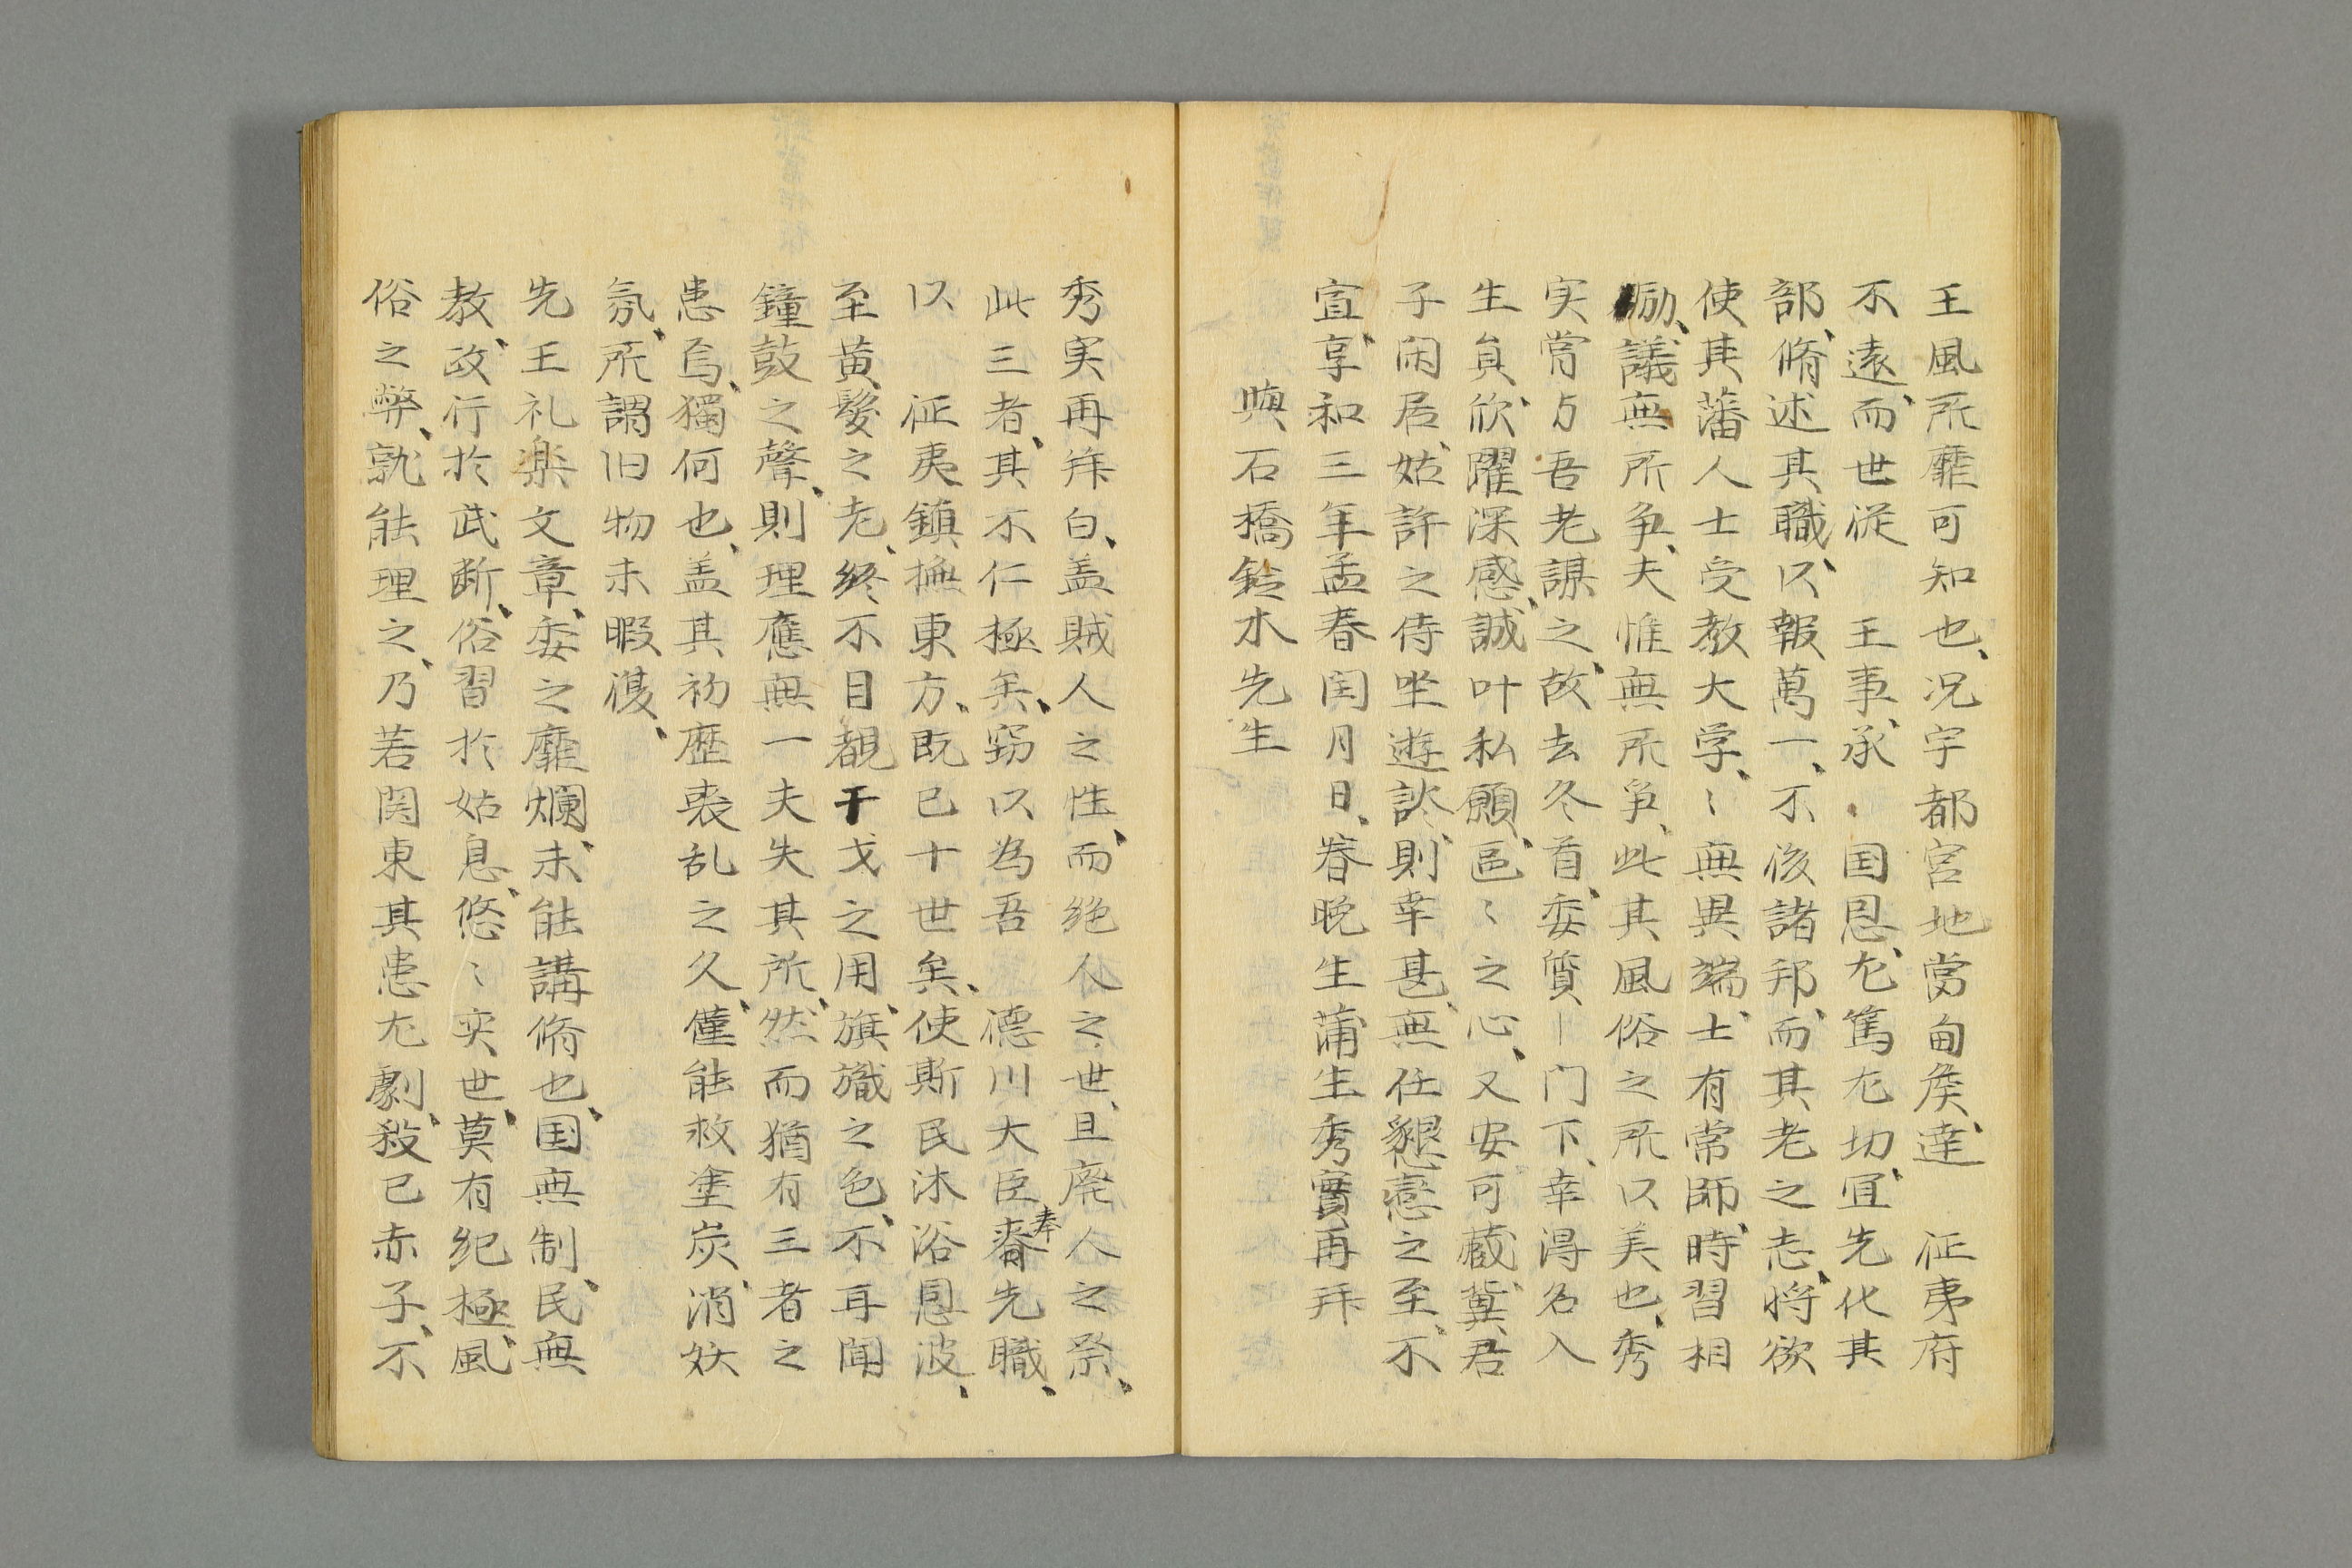 王風所靡可知也、况宇都宮地当甸矦、達　征夷府
不遠、而世從　王事、承　国恩、尤篤尤切、宜先化其
部、脩述其職、以報萬一、不後諸邦、而其老之志、将欲
使其藩人士受教大学、〻無異端、士有常師、時習相
励、議無所争、夫惟無所争、此其風俗之所以美也、秀
実嘗与吾老謀之、故去冬首、委質于门下、幸得名入
生員、欣躍深感、誠叶私願、區〻之心、又安可蔵、冀君
子闲居、姑許之侍坐遊談、則幸甚、無任懇悳之至、不
宣、享和三年孟春閏月日、眷晩生蒲生秀實再拝
與石橋鈴木先生
秀実再拝白、盖賊人之性、而絶人之世、且廃人之祭、
此三者、其不仁極矣、窃以為吾　德川大臣奉先職、
以　征夷鎮撫東方、既已十世矣、使斯民沐浴恩波、
至黄髮之老、終不目覩干戈之用、旗幟之色、不耳聞
鐘鼓之聲、則理應無一夫失其所、然而猶有三者之
患焉、獨何也、盖其初歴喪乱之久、僅能救塗炭、消妖
氛、所謂旧物未暇復、
先王礼楽文章、委之靡爛、未能講脩也、国無制、民無
教、政行於武断、俗習於姑息、悠〻奕世、莫有紀極、風
俗之弊、孰能理之、乃若関東其患尤劇、殺已赤子、不